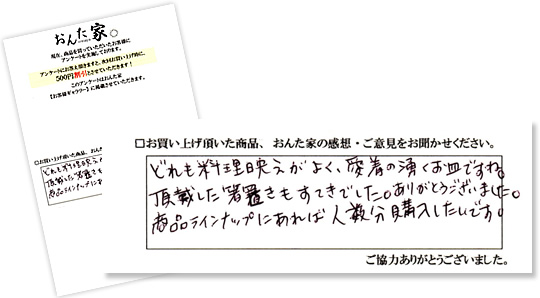 おんた家
現在、商品を買っていただいたお客様に
アンケートを実施しております。
アンケートにお答え頂きますと、次回お買い上げ時に、
500円割引とさせていただきます！
このアンケートはおんた家
【お客様ギャラリー】に掲載させていただきます。
□お買い上げ頂いた商品、おんた
どれも料理映え
頂戴した箸置き
商品ラインナップにあれ
□お買い上げ頂いた商品、おんた家の感想・ご意見をお聞かせください。
どれも料理映えがよく、愛着の湧くお皿ですね。
頂戴した箸置きもすてきでした。ありがとうございました。
商品ラインナップにあれば人数分購入したいです。
ご協力ありがとうございました。